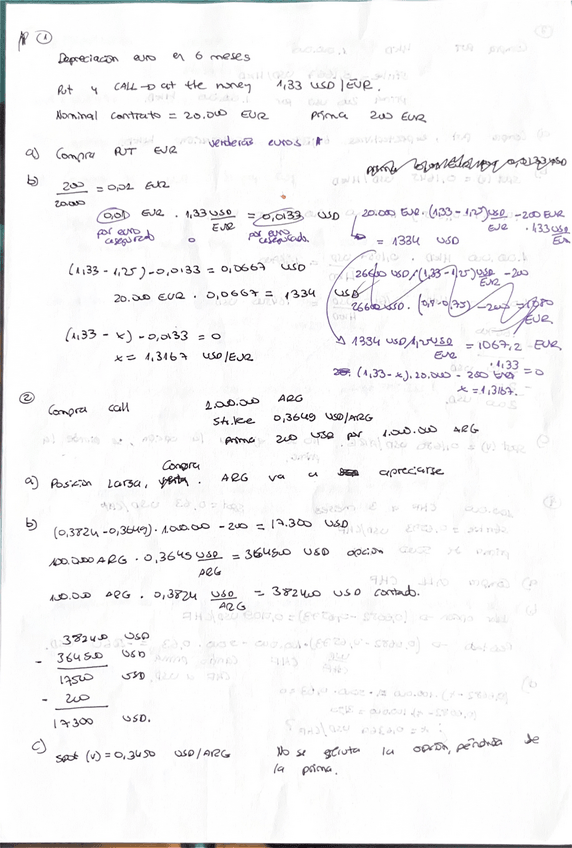 ①
Depreciación euro en 6 meses
Put y CALL → at the money 1,33 USD/EUR.
Nominal contrato = 20.000 EUR prima 200 EUR
a) Compra PUT EUR venderás euros
b) 200/20000 = 0,01 EUR
0,01 EUR · 1,33 USD/EUR = 0,0133 USD
por euro asegurado por euro asegurado
20.000 EUR · (1,33 - 1,25) USD/EUR - 200 EUR · 1,33 USD/EUR
= 1334 USD
(1,33 - 1,25) - 0,0133 = 0,0667 USD
20.000 EUR · 0,0667 = 1334 USD
26600 USD · (1,33 - 1,25) USD/EUR - 200
26600 USD · (0,8 - 0,75) - 200 = 1080 EUR
(1,33 - x) - 0,0133 = 0
x = 1,3167 USD/EUR
→ 1334 USD/1,25 USD/EUR = 1067,2 EUR
(1,33 - x) · 20.000 - 200 · 1,33 = 0
x = 1,3167.
②
Compra call 1.000.000 ARG
Strike 0,3649 USD/ARG
prima 200 USD por 1.000.000 ARG
a) Posición larga, Compra. ARG va a apreciarse
b) (0,3824 - 0,3649) · 1.000.000 - 200 = 17.300 USD
100.000 ARG · 0,3645 USD/ARG = 364500 USD opción
100.000 ARG · 0,3824 USD/ARG = 382400 USD contado.
382400 USD
- 364500 USD
17500 USD
- 200
17300 USD.
c) spot (v) = 0,3450 USD/ARG No se ejecuta la opción, pérdida de
la prima.